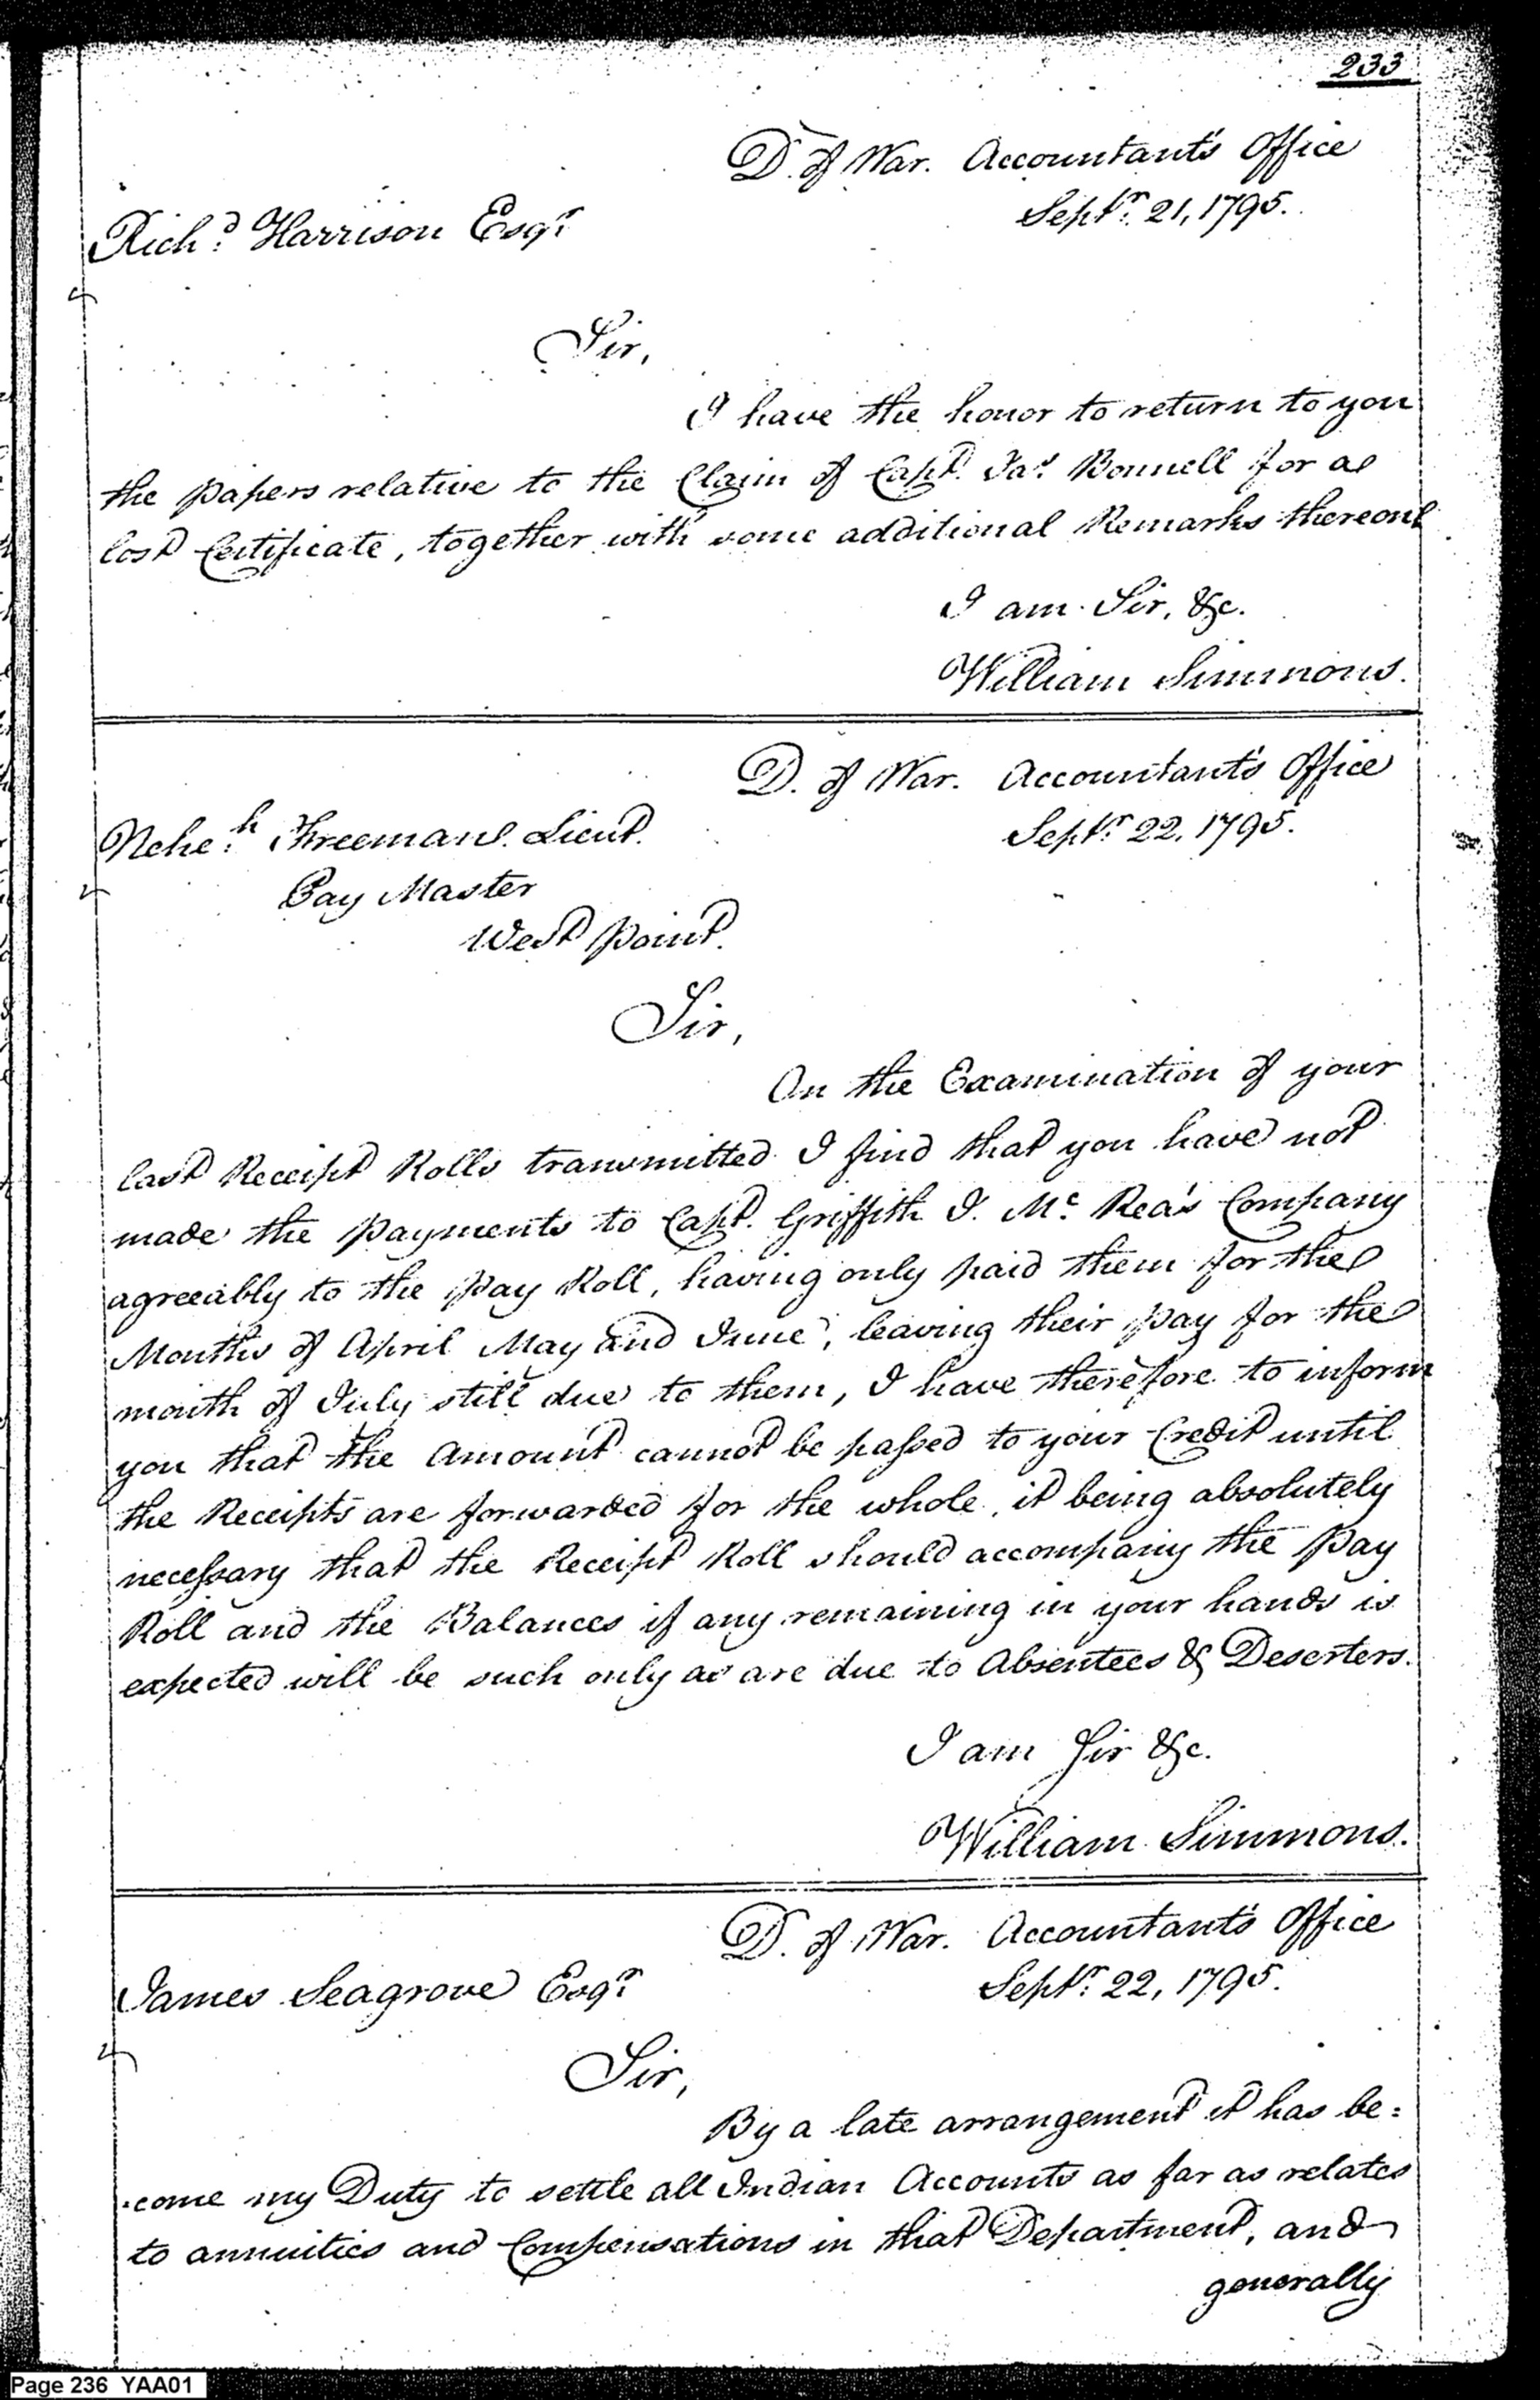 233
D. of War. Accountant's Office
Septr. 21, 1795.
Richd. Harrison Esqr.
Sir,
I have the honor to return to you
the papers relative to the Claim of Capt. Jas. Bonnell for a
lost Certificate, together with some additional Remarks thereon
I am Sir, &c.
William Simmons.
D. of War. Accountant's Office
Septr. 22, 1795.
Neheh. Freeman Lieut.
Pay Master
West Point.
Sir,
On the Examination of your
last Receipt Rolls transmitted I find that you have not
made the payments to Capt. Griffith J. Mc. Rea's Company
agreeably to the Pay Roll, having only paid them for the
Months of April May and June, leaving their pay for the
month of July still due to them, I have therefore to inform
you that the Amount cannot be passed to your Credit until
the Receipts are forwarded for the whole, it being absolutely
necessary that the Receipt Roll should accompany the Pay
Roll and the Balances if any remaining in your hands is
expected will be such only as are due to Absentees & Deserters.
I am Sir &c.
William Simmons.
D. of War. Accountant's Office
Septr. 22, 1795.
James Seagrove Esqr.
Sir,
By a late arrangement it has be=
come my Duty to settle all Indian Accounts as far as relates
to annuities and Compensations in that Department, and
generally
Page 236 YAA01